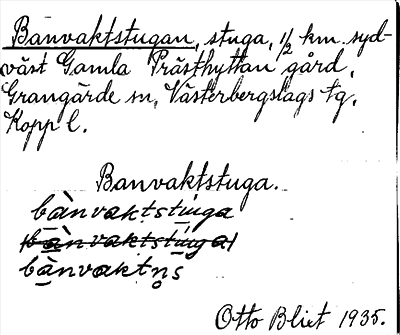 Banvaktstugan, stuga, 1/2 km. syd-
väst Gamla Prästhyttan gård,
Grangärde sn, Västerbergslags tg,
Kopp l.
Banvaktstuga.
bànvaktstuga
(bànvaktstuga)
bànvaktn̥s
Otto Blixt 1935.